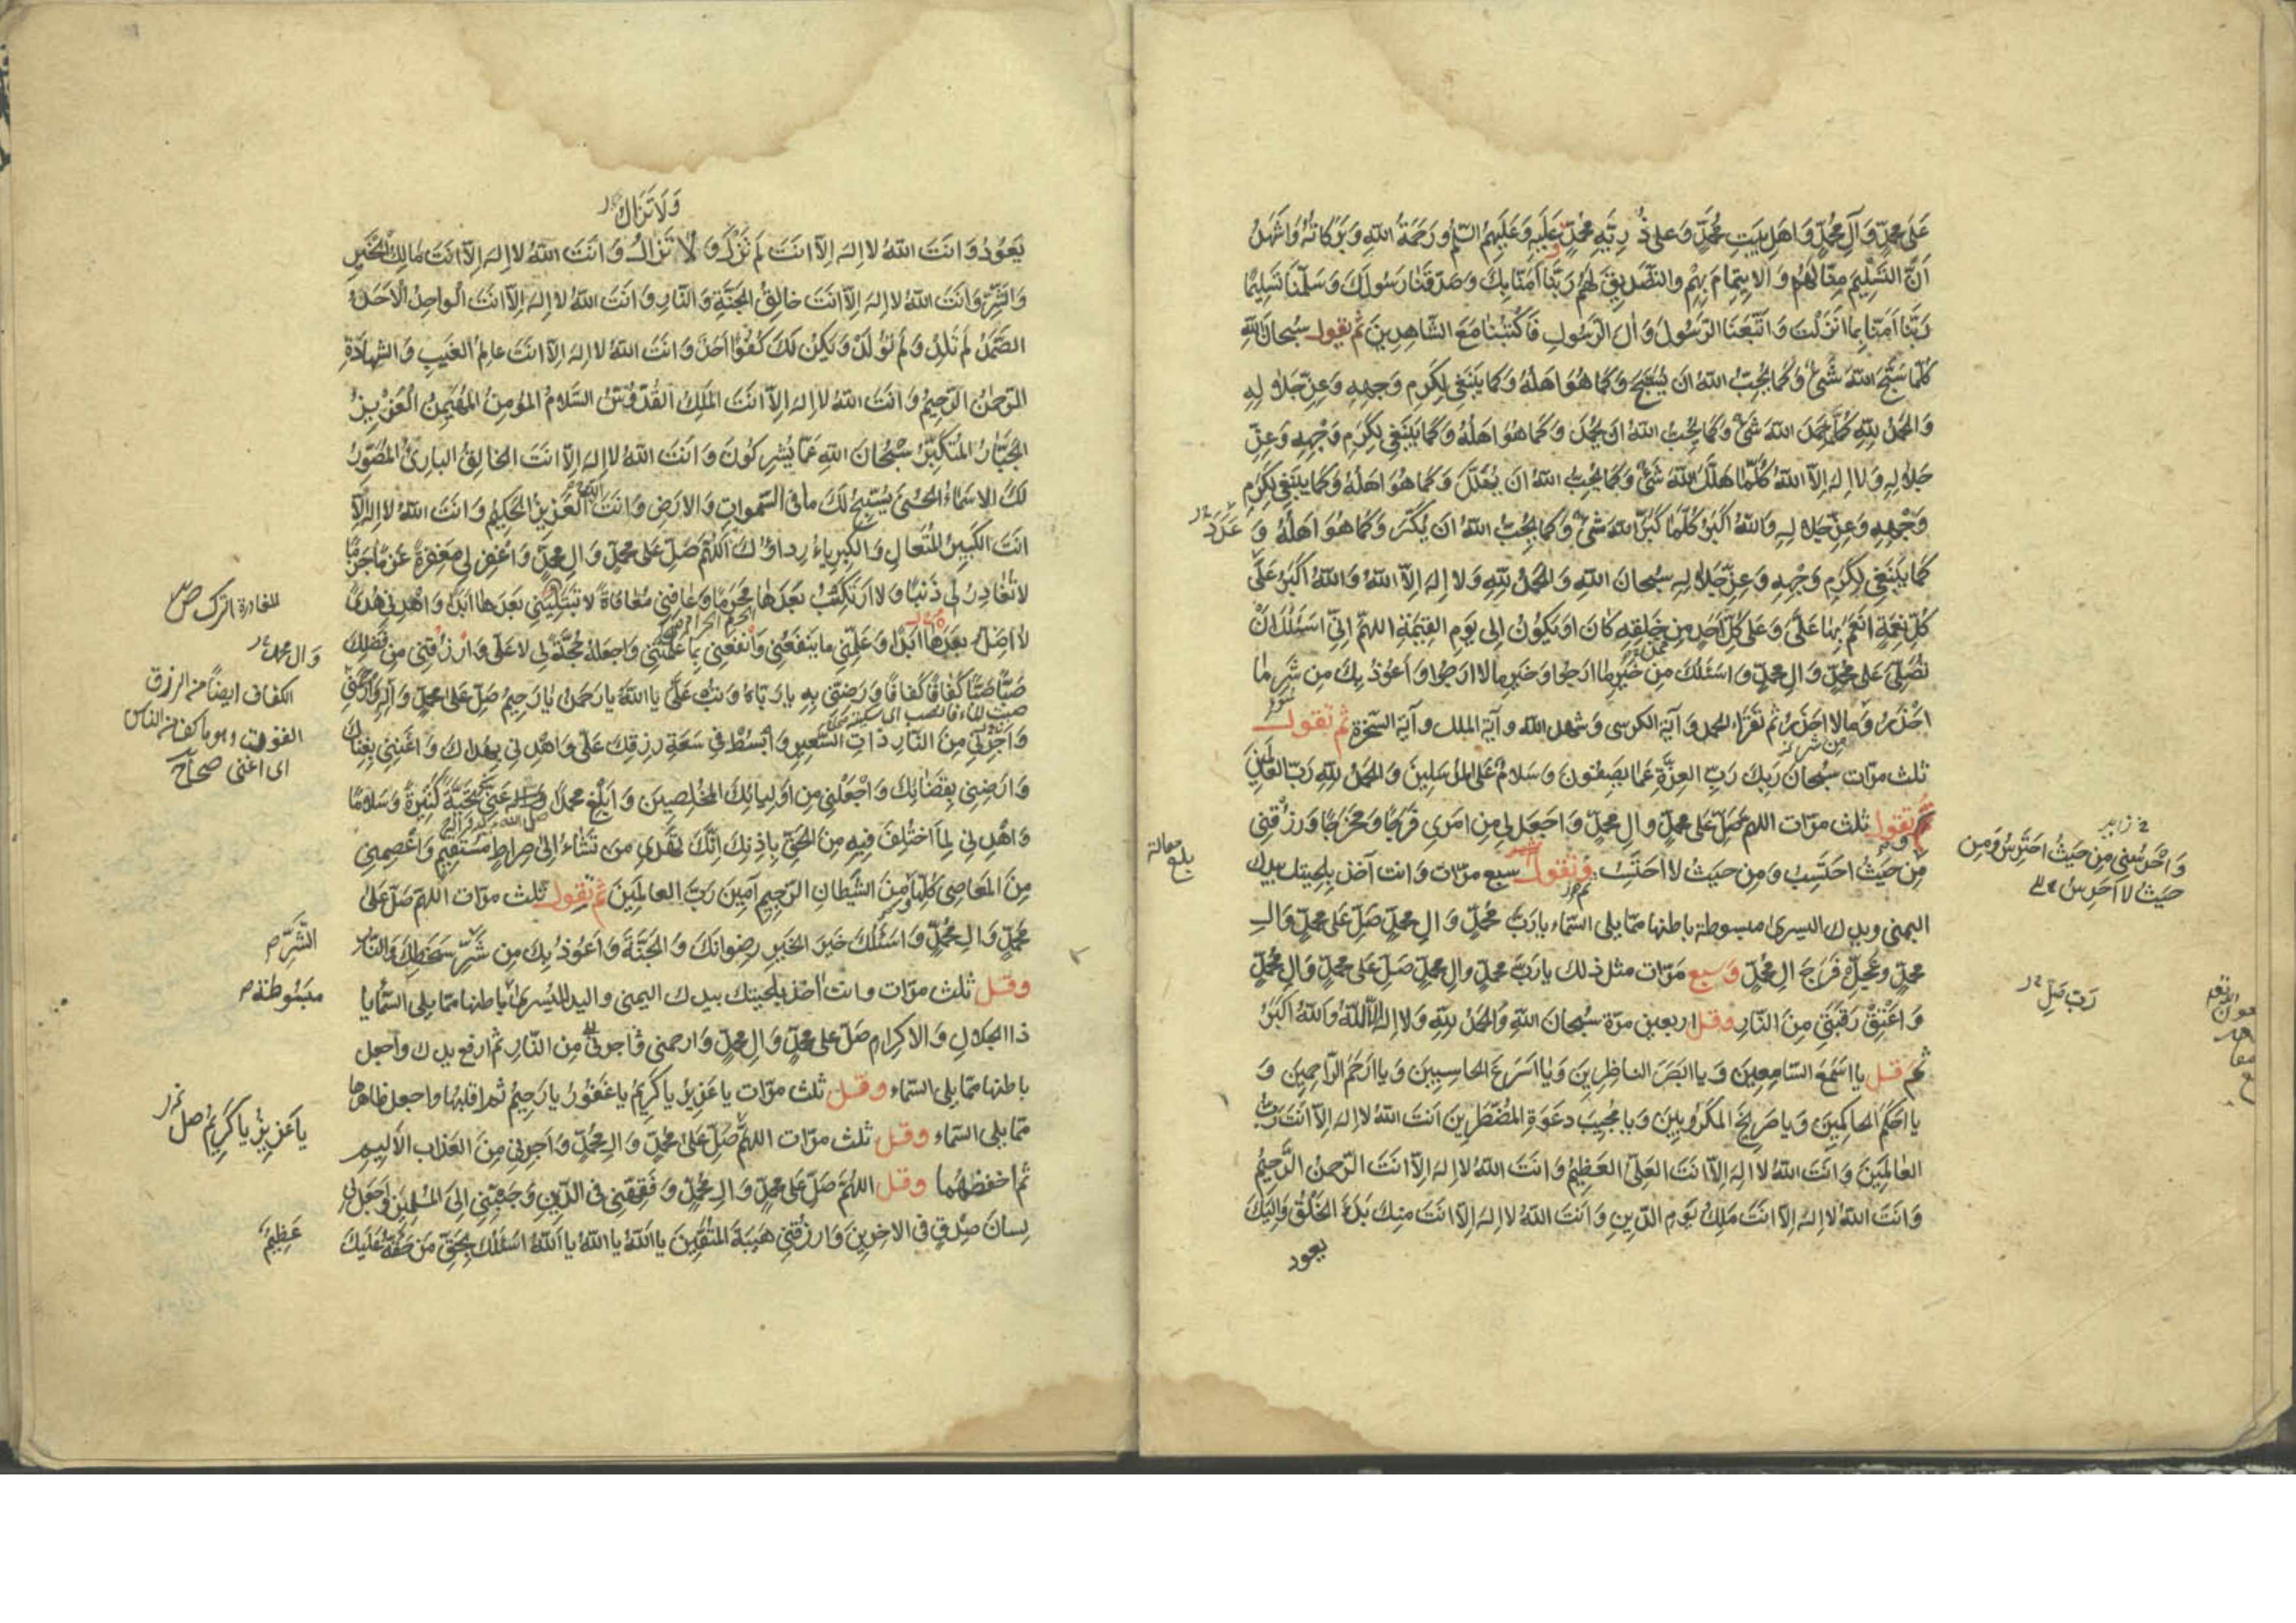 عَلَى مُحَمَّدٍ وَآلِ مُحَمَّدٍ وَاَهلِ بَيتِ مُحَمَّدٍ وَعَلى ذُرِّيَّةِ مُحَمَّدٍ عَلَيهِ وَعَلَيهِمُ السَّلمُ وَرَحمَةُ اللهِ وَبَرَكاتُهُ وَاَشهَدُ
اَنَّ التَّسليمَ مِنّا لَهُم وَالايتِمامَ بِهِم وَالتَّصديقَ لَهُم رَبَّنا آمَنّا بِكَ وَصَدَّقنا رَسُولَكَ وَسَلَّمنا تَسليمًا
رَبَّنا آمَنّا بِما اَنزَلتَ وَاتَّبَعنَا الرَّسُولَ وَآلَ الرَّسُولِ فَاكتُبنا مَعَ الشّاهِدينَ ثم تقول سُبحانَ اللهِ
كُلَّما سَبَّحَ اللهَ شَيءٌ وَكَما يُحِبُّ اللهُ اَن يُسَبَّحَ وَكَما هُوَ اَهلُهُ وَكَما يَنبَغي لِكَرَمِ وَجهِهِ وَعِزِّ جَلالِهِ
وَالحَمدُ لِلّهِ كُلَّما حَمِدَ اللهَ شَيءٌ وَكَما يُحِبُّ اللهُ اَن يُحمَدَ وَكَما هُوَ اَهلُهُ وَكَما يَنبَغي لِكَرَمِ وَجهِهِ وَعِزِّ
جَلالِهِ وَلا اِلهَ اِلَّا اللهُ كُلَّما هَلَّلَ اللهَ شَيءٌ وَكَما يُحِبُّ اللهُ اَن يُهَلَّلَ وَكَما هُوَ اَهلُهُ وَكَما يَنبَغي لِكَرَمِ
وَجهِهِ وَعِزِّ جَلالِهِ وَاللهُ اَكبَرُ كُلَّما كَبَّرَ اللهَ شَيءٌ وَكَما يُحِبُّ اللهُ اَن يُكَبَّرَ وَكَما هُوَ اَهلُهُ وَ
عَدَدَ
كَما يَنبَغي لِكَرَمِ وَجهِهِ وَعِزِّ جَلالِهِ سُبحانَ اللهِ وَالحَمدُ لِلّهِ وَلا اِلهَ اِلَّا اللهُ وَاللهُ اَكبَرُ عَلى
كُلِّ نِعمَةٍ اَنعَمَ بِها عَلَيَّ وَعَلى كُلِّ اَحَدٍ مِن خَلقِهِ كانَ اَو يَكُونُ اِلى يَومِ القِيمَةِ اللهم اِنّي اَسئَلُكَ اَن
تُصَلِّيَ عَلى مُحَمَّدٍ وَآلِ مُحَمَّدٍ وَاَسئَلُكَ مِن خَيرِ ما اَرجُوا وَخَيرِ ما لا اَرجُوا وَاَعُوذُ بِكَ مِن شَرِّ ما
اَحذَرُ وَما لا اَحذَرُ ثم تقراء الحمد وآية الكرسي وشهد الله وآية الملك وآية السخرة ثم تقول
ثلث مرّات سُبحانَ رَبِّكَ رَبِّ العِزَّةِ عَمّا يَصِفُونَ وَسَلامٌ عَلَى المُرسَلينَ وَالحَمدُ لِلّهِ رَبِّ العالَمينَ
ثم تقول ثلث مرّات اللهم صَلِّ عَلى مُحَمَّدٍ وَآلِ مُحَمَّدٍ وَاجعَل لي مِن اَمري فَرَجًا وَمَخرَجًا وَرزُقني
مِن حَيثُ اَحتَسِبُ وَمِن حَيثُ لا اَحتَسِبُ وتقول سبع مرّات وانت آخذ بلحيتك بيدك
وَاحرُسني مِن حَيثُ اَحتَرِسُ وَمِن
حَيثُ لا اَحتَرِسُ
اليمنى ويدك اليسرى مبسوطة باطنها ممّا يلي السّماء يا رَبَّ مُحَمَّدٍ وَآلِ مُحَمَّدٍ صَلِّ عَلى مُحَمَّدٍ وَآلِ
مُحَمَّدٍ وَعَجِّل فَرَجَ آلِ مُحَمَّدٍ وسبع مرّات مثل ذلك يا رَبَّ مُحَمَّدٍ وَآلِ مُحَمَّدٍ صَلِّ عَلى مُحَمَّدٍ وَآلِ مُحَمَّدٍ
وَاَعتِق رَقَبَتي مِنَ النّارِ وقل اربعين مرّة سُبحانَ اللهِ وَالحَمدُ لِلّهِ وَلا اِلهَ اِلَّا اللهُ وَاللهُ اَكبَرُ
رَبِّ صَلِّ
ثم قل يا اَسمَعَ السّامِعينَ وَيا اَبصَرَ النّاظِرينَ وَيا اَسرَعَ الحاسِبينَ وَيا اَرحَمَ الرّاحِمينَ وَ
يا اَحكَمَ الحاكِمينَ وَيا صَريخَ المَكرُوبينَ وَيا مُجيبَ دَعوَةِ المُضطَرّينَ اَنتَ اللهُ لا اِلهَ اِلّا اَنتَ رَبُّ
العالَمينَ وَاَنتَ اللهُ لا اِلهَ اِلّا اَنتَ العَلِيُّ العَظيمُ وَاَنتَ اللهُ لا اِلهَ اِلّا اَنتَ الرَّحمنُ الرَّحيمُ
وَاَنتَ اللهُ لا اِلهَ اِلّا اَنتَ مَلِكُ يَومِ الدّينِ وَاَنتَ اللهُ لا اِلهَ اِلّا اَنتَ مِنكَ بَدءُ الخَلقِ وَاِلَيكَ
يعود
وَلا تَزالُ
يَعُودُ وَاَنتَ اللهُ لا اِلهَ اِلّا اَنتَ لَم تَزَل وَلا تَزالُ وَاَنتَ اللهُ لا اِلهَ اِلّا اَنتَ مالِكُ الخَيرِ
وَالشَّرِّ وَاَنتَ اللهُ لا اِلهَ اِلّا اَنتَ خالِقُ الجَنَّةِ وَالنّارِ وَاَنتَ اللهُ لا اِلهَ اِلّا اَنتَ الواحِدُ الاَحَدُ
الصَّمَدُ لَم تَلِد وَلَم تُولَد وَيَكُن لَكَ كُفُوًا اَحَدٌ وَاَنتَ اللهُ لا اِلهَ اِلّا اَنتَ عالِمُ الغَيبِ وَالشَّهادَةِ
الرَّحمنُ الرَّحيمُ وَاَنتَ اللهُ لا اِلهَ اِلّا اَنتَ المَلِكُ القُدُّوسُ السَّلامُ المُؤمِنُ المُهَيمِنُ العَزيزُ
الجَبّارُ المُتَكَبِّرُ سُبحانَ اللهِ عَمّا يُشرِكُونَ وَاَنتَ اللهُ لا اِلهَ اِلّا اَنتَ الخالِقُ البارِئُ المُصَوِّرُ
لَكَ الاَسماءُ الحُسنى يُسَبِّحُ لَكَ ما فِي السَّمواتِ وَالاَرضِ وَاَنتَ العَزيزُ الحَكيمُ وَاَنتَ اللهُ لا اِلهَ اِلّا
اَنتَ الكَبيرُ المُتَعالِ وَالكِبرِياءُ رِداؤُكَ اَللّهُمَّ صَلِّ عَلى مُحَمَّدٍ وَآلِ مُحَمَّدٍ وَاغفِر لي مَغفِرَةً عَزمًا جَزمًا
لا تُغادِرُ لي ذَنبًا وَلا اَرتَكِبُ بَعدَها مُحَرَّمًا وَعافِني مُعافاةً لا تَبتَليني بَعدَها اَبَدًا وَاهدِني هُدًى
المغادرة الترك ص
لا اَضِلُّ بَعدَها اَبَدًا وَعَلِّمني ما يَنفَعُني وَانفَعني بِما عَلَّمتَني وَاجعَلهُ حُجَّةً لي لا عَلَيَّ وَارزُقني مِن فَضلِكَ
وَآل محمد
صَبًّا صَبًّا كَفافًا كَفافًا وَرَضِّني بِهِ يا رَبّاهُ وَتُب عَلَيَّ يا اَللهُ يا رَحمنُ يا رَحيمُ صَلِّ عَلى مُحَمَّدٍ وَآلِهِ وَارحَمني
الكفاف ايضاً من الرزق
القوت وهو ما كف من الناس
اى اغننى صحاح
وَاَجِرني مِنَ النّارِ ذاتِ السَّعيرِ وَابسُط في سَعَةِ رِزقِكَ عَلَيَّ وَاهدِني بِهُداكَ وَاَغنِني بِغِناكَ
وَاَرضِني بِقَضائِكَ وَاجعَلني مِن اَولِيائِكَ المُخلِصينَ وَاَبلِغ مُحَمَّدًا وآله عَنّي تَحِيَّةً كَثيرَةً وَسَلامًا
وَاهدِني لِما اختُلِفَ فيهِ مِنَ الحَقِّ بِاِذنِكَ اِنَّكَ تَهدي مَن تَشاءُ اِلى صِراطٍ مُستَقيمٍ وَاعصِمني
مِنَ المَعاصي كُلِّها وَمِنَ الشَّيطانِ الرَّجيمِ آمينَ رَبَّ العالَمينَ ثم تقول ثلث مرّات اللهم صَلِّ عَلى
مُحَمَّدٍ وَآلِ مُحَمَّدٍ وَاَسئَلُكَ خَيرَ الخَيرِ رِضوانَكَ وَالجَنَّةَ وَاَعُوذُ بِكَ مِن شَرِّ سَخَطِكَ وَالنّارِ
الشَّرِّ
وقل ثلث مرّات وانت آخذ بلحيتك بيدك اليمنى واليد اليسرى باطنها ممّا يلي السّماء يا
مبسُوطة
ذَا الجَلالِ وَالاِكرامِ صَلِّ عَلى مُحَمَّدٍ وَآلِ مُحَمَّدٍ وَارحَمني وَاَجِرني مِنَ النّارِ ثم ارفع يدك واجعل
باطنها ممّا يلي السّماء وقل ثلث مرّات يا عَزيزُ يا كَريمُ يا غَفُورُ يا رَحيمُ ثم اقلبها واجعل ظاهرها
يا عَزيزُ يا كَريمُ صل
ممّا يلي السّماء وقل ثلث مرّات اللهم صَلِّ عَلى مُحَمَّدٍ وَآلِ مُحَمَّدٍ وَاَجِرني مِنَ العَذابِ الاَليمِ
ثم اخفظهما وقل اللهم صَلِّ عَلى مُحَمَّدٍ وَآلِ مُحَمَّدٍ وَفَقِّهني فِي الدّينِ وَحَبِّبني اِلَى المُسلِمينَ وَاجعَل لي
لِسانَ صِدقٍ فِي الآخِرينَ وَارزُقني هَيبَةَ المُتَّقينَ يا اَللهُ يا اَللهُ يا اَللهُ اَسئَلُكَ بِحَقِّ مَن حَقُّهُ عَلَيكَ
عَظيمٌ